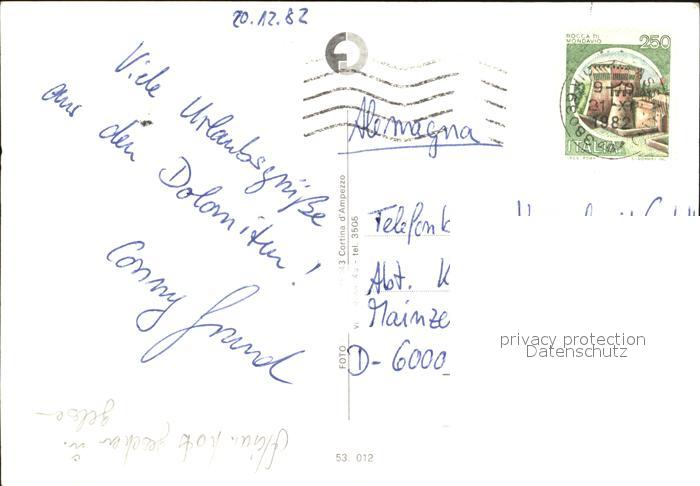 20.12.82
Viele Urlaubsgrüße
aus den Dolomiten!
Conny
Alemagna
Telefonk
Abt. K
Mainze
D-6000
ROCCA DI
MONDAVIO
250
1982
ITALIA
43 Cortina d'Ampezzo
tel. 3505
FOTO
53. 012
privacy protection
Datenschutz